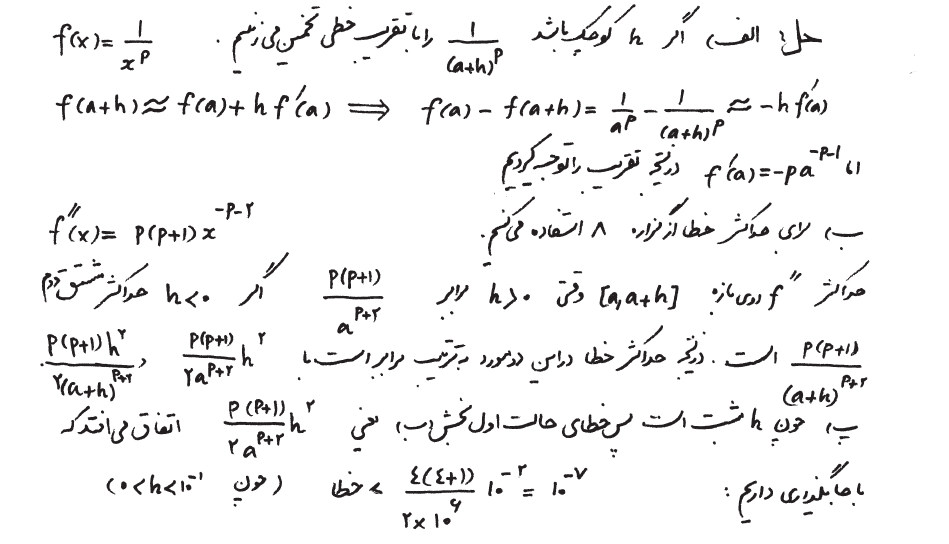 حل: الف) اگر h کوچک باشد 1/(a+h)^p را با تقریب خطی تخمین می زنیم . f(x) = 1/x^p
f(a+h) ≈ f(a) + h f'(a) ⟹ f(a) - f(a+h) = 1/a^p - 1/(a+h)^p ≈ -h f'(a)
اما f'(a) = -p a^(-p-1) در نتیجه تقریب را توجیه کردیم
ب) برای حداکثر خطا از گزاره ۸ استفاده می کنیم. f''(x) = p(p+1) x^(-p-۲)
حداکثر f'' روی بازه [a, a+h] وقتی h>۰ برابر p(p+1)/a^(p+۲) اگر h<۰ حداکثر مشتق دوم
p(p+1)/(a+h)^(p+۲) است . در نتیجه حداکثر خطا در این دو مورد به ترتیب برابر است با p(p+1)/۲a^(p+۲) h^۲ , p(p+1)h^۲/۲(a+h)^(p+۲)
پ) چون h مثبت است پس خطای حالت اول بخش (ب) یعنی p(p+1)/۲a^(p+۲) h^۲ اتفاق می افتد که
با جایگذاری داریم : خطا < ٤(٤+1)/۲×10^۶ 10^-۲ = 10^-۷ (چون ۰<h<10^-1)